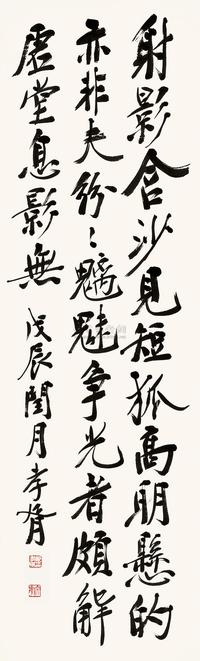 射影含沙見短狐高明懸的
亦非夫紛〻魑魅争光者頗解
虚堂息影無
戊辰閏月孝胥